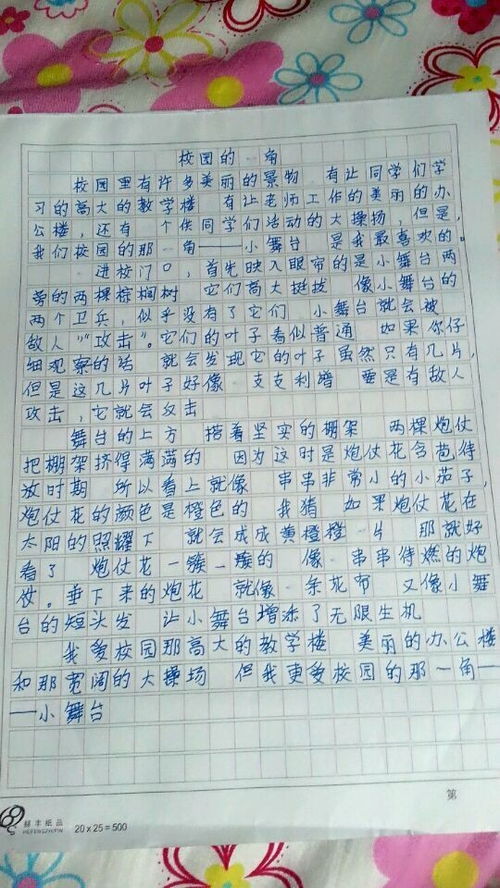 校园的一角
校园里有许多美丽的景物 有让同学们学
习的高大的教学楼 有让老师工作的美丽的办
公楼，还有 个供同学们活动的大操场，但是，
我们校园的那一角——小舞台 是我最喜欢的。
进校门口，首先映入眼帘的是小舞台两
旁的两棵棕榈树 它们高大挺拔 像小舞台的
两个卫兵，似乎没有了它们 小舞台就会被
敌人"攻击"。它们的叶子看似普通 如果你仔
细观察的话 就会发现它的叶子虽然只有几片，
但是这几片叶子好像 支支利 要是有敌人
攻击，它就会反击
舞台的上方 搭着坚实的棚架 两棵炮仗
把棚架挤得满满的 因为这时是炮仗花含苞待
放时期 所以看上就像 串串非常小的小茄子，
炮仗花的颜色是橙色的 我猜 如果炮仗花在
太阳的照耀下 就会成成黄橙橙一片 那就好
看了 炮仗花一簇一簇的 像一串串待燃的炮
仗。垂下来的炮花 就像一条花布 又像小舞
台的短头发 让小舞台增添了无限生机
我爱校园那高大的教学楼 美丽的办公楼
和那宽阔的大操场 但我更爱校园的那一角—
—小舞台
第
20×25=500